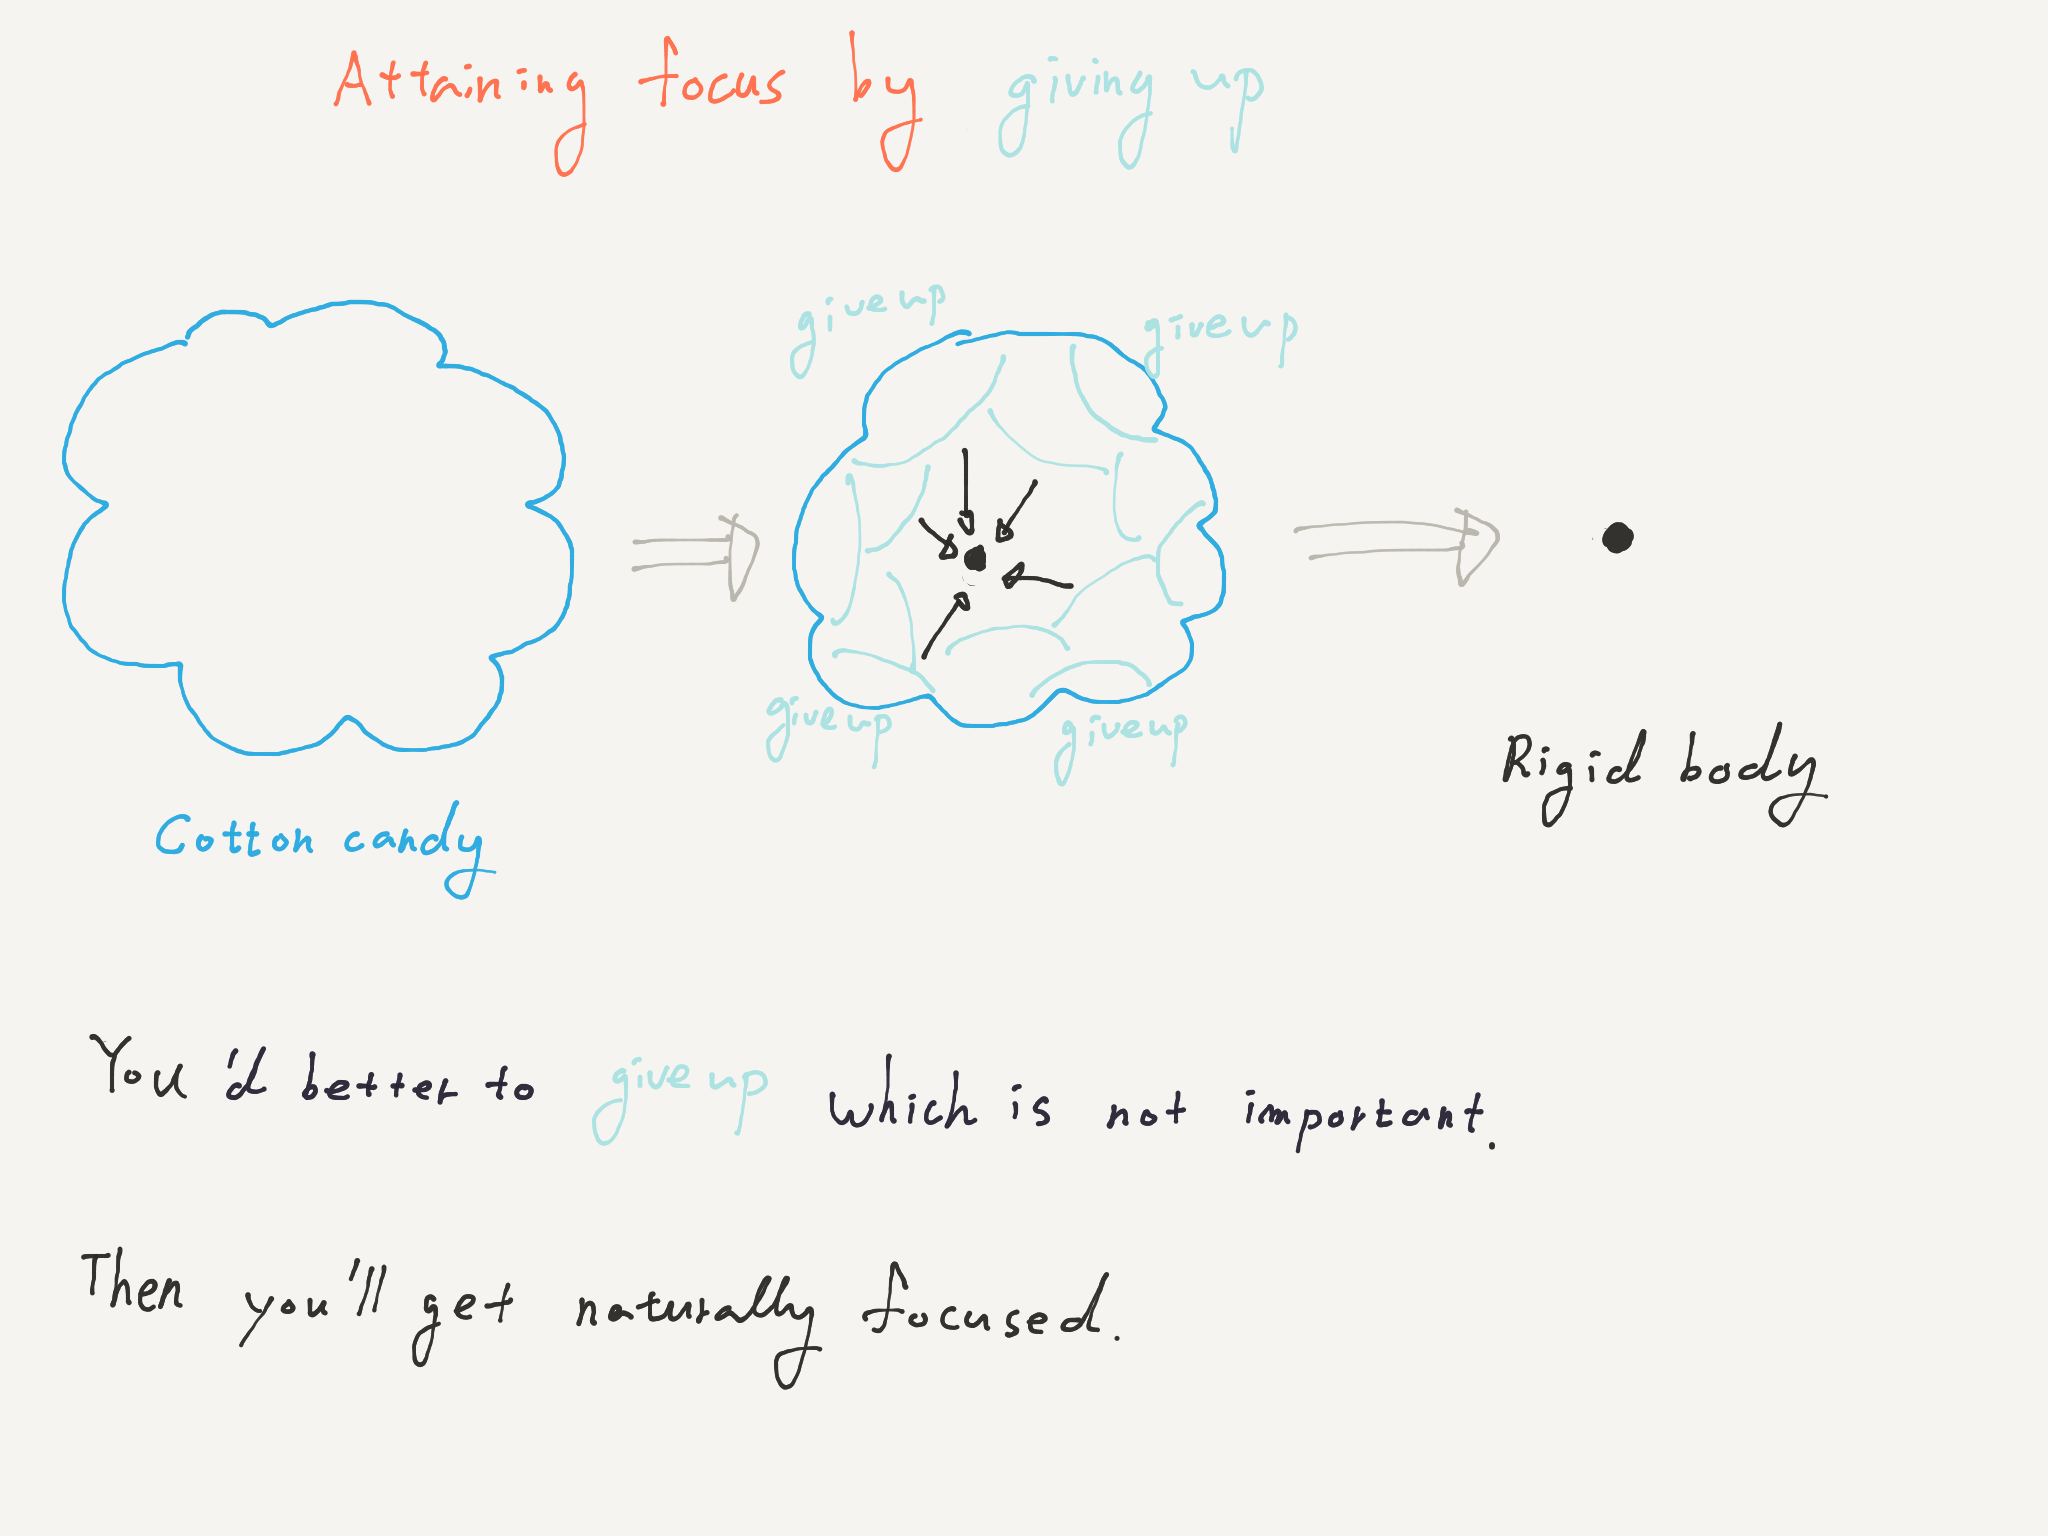 Attaining focus by giving up
give up
give up
give up
give up
Cotton candy
Rigid body
You'd better to give up which is not important.
Then you'll get naturally focused.